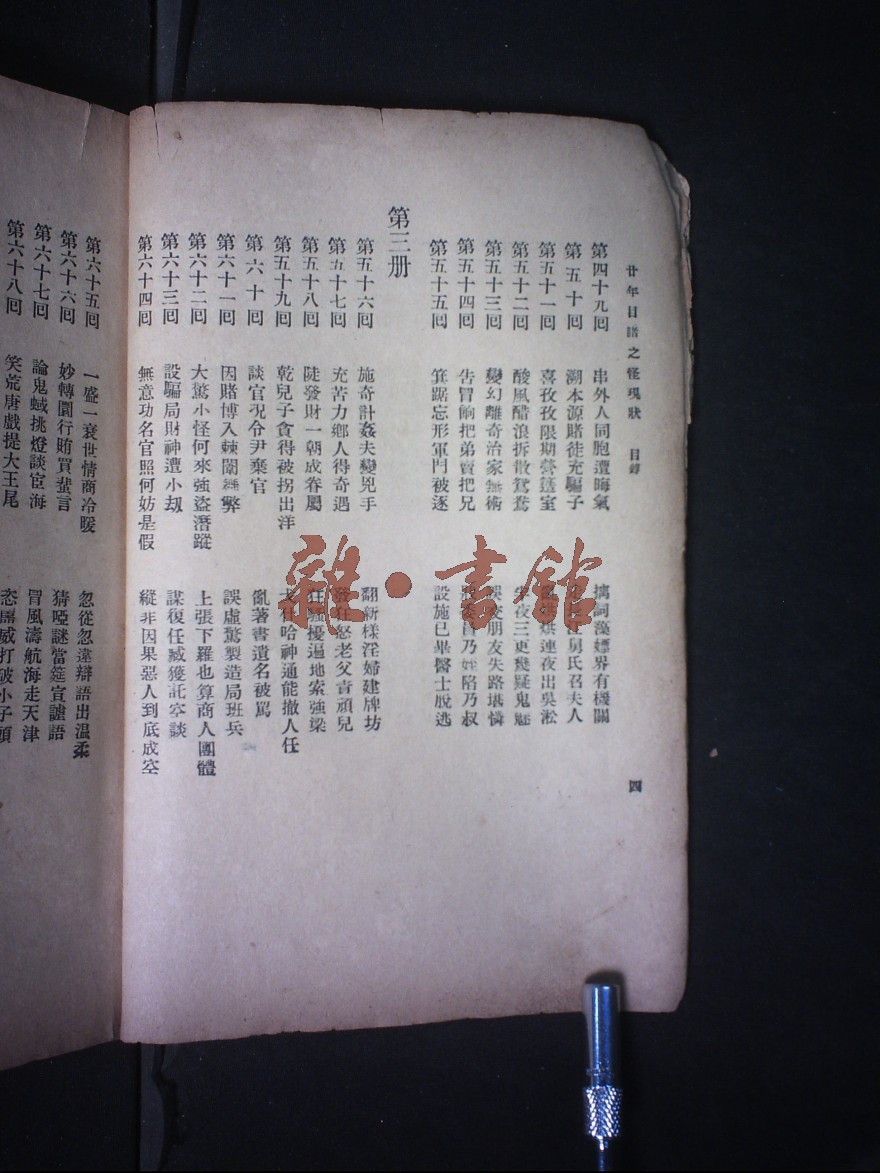 廿年目睹之怪現狀 目錄
四
第四十九回 串外人同胞遭晦氣 摛詞藻嫖界有機關
第五十回 溯本源賭徒充騙子 舅氏召夫人
第五十一回 喜孜孜限期營簉室 烘連夜出吳淞
第五十二回 酸風醋浪拆散鴛鴦 夜三更幾疑鬼魅
第五十三回 變幻離奇治家無術 誤交朋友失路堪憐
第五十四回 告冒餉把弟賣把兄 戕委員乃姪陷乃叔
第五十五回 箕踞忘形軍門被逐 設施已畢醫士脫逃
第三册
第五十六回 施奇計姦夫變兇手 翻新樣淫婦建牌坊
第五十七回 充苦力鄉人得奇遇 發狂怒老父責頑兒
第五十八回 陡發財一朝成眷屬 狂騷擾遍地索強梁
第五十九回 乾兒子貪得被拐出洋 戈什哈神通能撤人任
第六十回 談官況令尹棄官 亂著書遺名被罵
第六十一回 因賭博入棘闈舞弊 誤虛驚製造局班兵
第六十二回 大驚小怪何來強盜潛蹤 上張下羅也算商人團體
第六十三回 設騙局財神遭小刧 謀復任臧獲託空談
第六十四回 無意功名官照何妨是假 縱非因果惡人到底成空
第六十五回 一盛一衰世情商冷暖 忽從忽違辯語出溫柔
第六十六回 妙轉圜行賄買蜚言 猜啞謎當筵宣謔語
第六十七回 論鬼蜮挑燈談宦海 冒風濤航海走天津
第六十八回 笑荒唐戲提大王尾 恣囂威打破小子頭
雜·書館